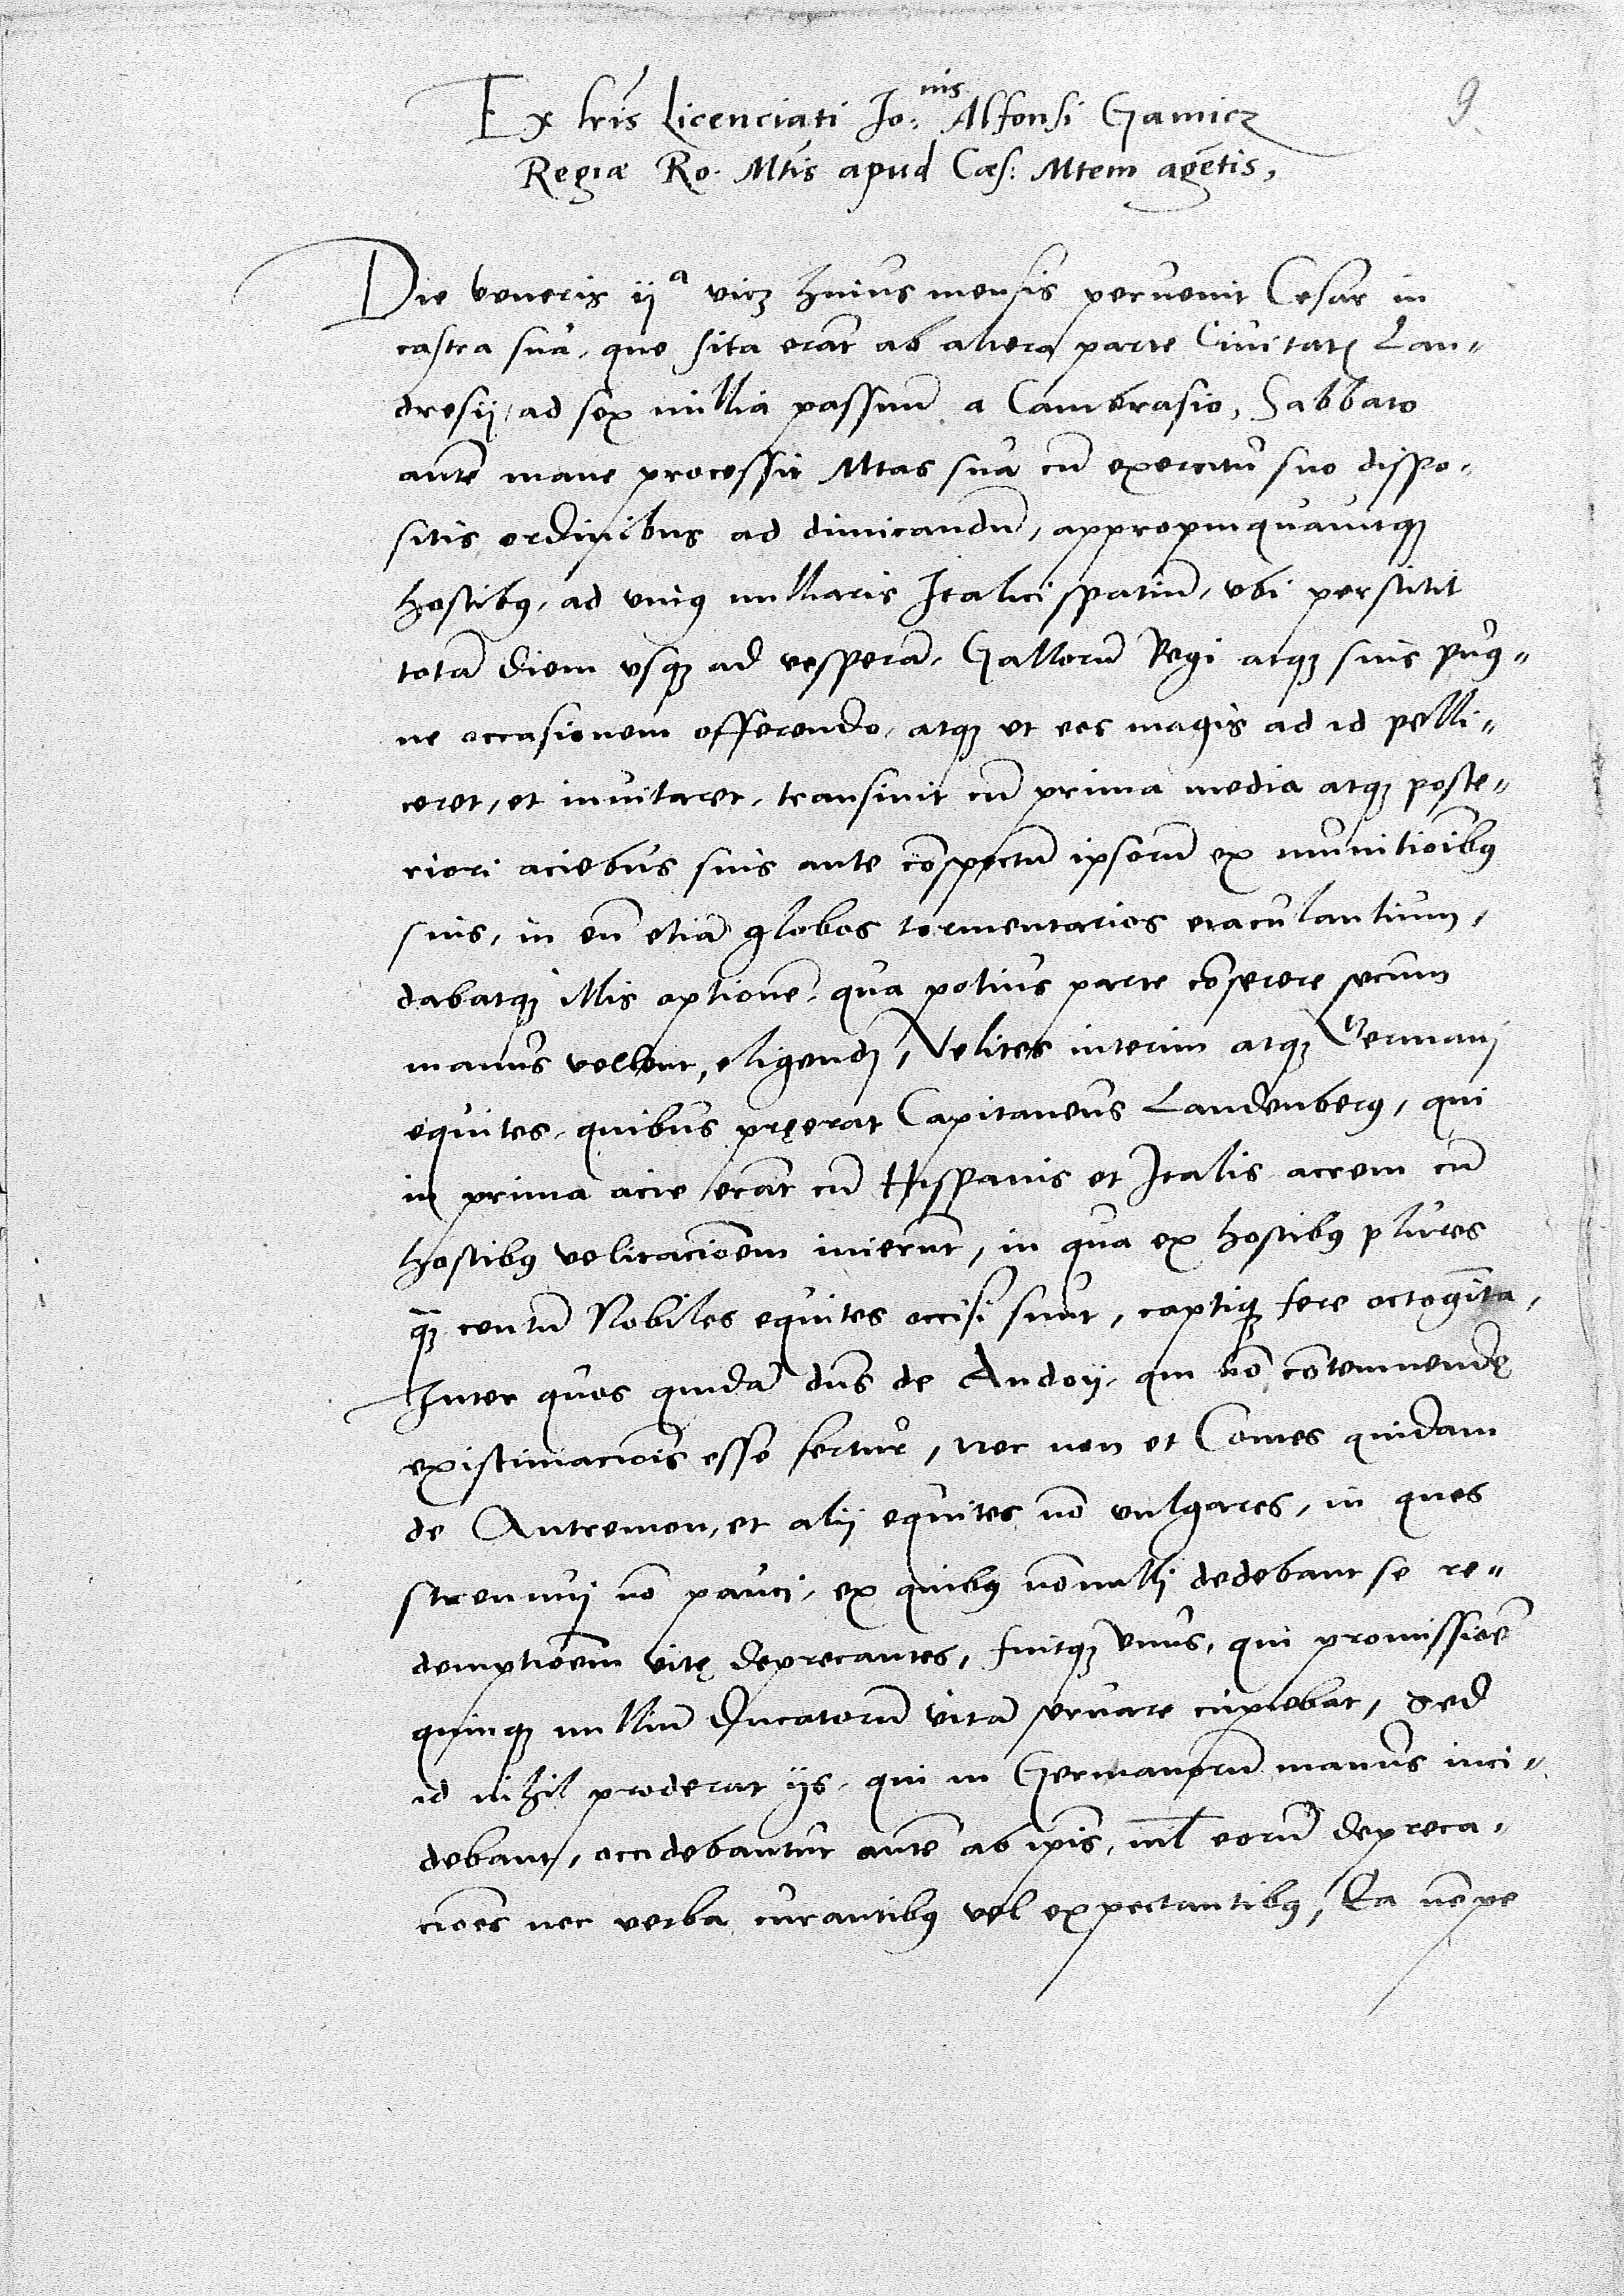 9.
Ex lris Licenciati Jo:nis Alfonsi Gamicz
Regiæ Ro. Mtis apud Cæs: Mtem agētis,
Die veneris ijª vicz huius mensis peruenit Cesar in
castra sua, que sita erāt ab altera parte Ciuitatꝭ Lan-
dresij, ad sex millia passuum a Cambrasio, Sabbato
autē mane processit Mtas sua cū exercitu suo dispo-
sitis ordinibus ad dimicandū, appropinquauitqꝫ
hostibꝰ, ad vniꝰ milliaris Italici spatiū, vbi perstitit
totā diem vsqꝫ ad vesperā, Gallorū Regi atqꝫ suis pug-
ne occasionem offerendo, atqꝫ vt eos magis ad id pelli-
ceret, et inuitaret, transiuit cū prima media atqꝫ poste-
riori aciebus suis ante cōspectū ipsorū ex munitioībꝰ
suis, in eū etiā globos tormentarios eiaculantium,
dabatqꝫ illis optionē, qua potius parte cōserere secum
manus vellent, eligendj, Velites interim atqꝫ Germanj
equites, quibus pręerat Capitaneus Landenberg, qui
in prima acie erāt cū Hispanis et Italis acrem cū
hostibꝰ velitacionem inierunt, in qua ex hostibꝰ plures
qꝫ centū Nobiles equites occisi sunt, captiqꝫ fere octogīta,
Inter quos quidā dns de Andoij, qui nō contemnendę
existimaciois esse fertur, nec non et Comes quidam
de Antremon, et alij equites nō vulgares, in quos
strennuij nō pauci, ex quibꝰ nōnulli dedebant se re-
demptionem vitę deprecantes, fuitqꝫ vnus, qui promissioē
quinqꝫ milliū Ducatorū vitā seruare cupiebat, Sed
id nihil proderat ijs, qui in Germanorū manus inci-
debant, occidebantur autē ab ipīs, nil eorū depreca-
ciones nec verba curantibꝰ vel expectantibꝰ, Ea nēpe